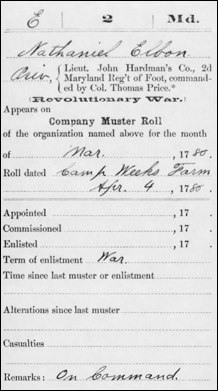 E 2 Md.
Nathaniel Elbon
Priv, { Lieut. John Hardman's Co., 2d
Maryland Reg't of Foot, command-
ed by Col. Thomas Price.*
(Revolutionary War.)
Appears on
Company Muster Roll
of the organization named above for the month
of Mar. , 1780.
Roll dated Camp Weeks Farm
Apr. 4 , 1780.
Appointed , 17 .
Commissioned , 17 .
Enlisted , 17 .
Term of enlistment War.
Time since last muster or enlistment
Alterations since last muster
Casualties
Remarks: On Command.